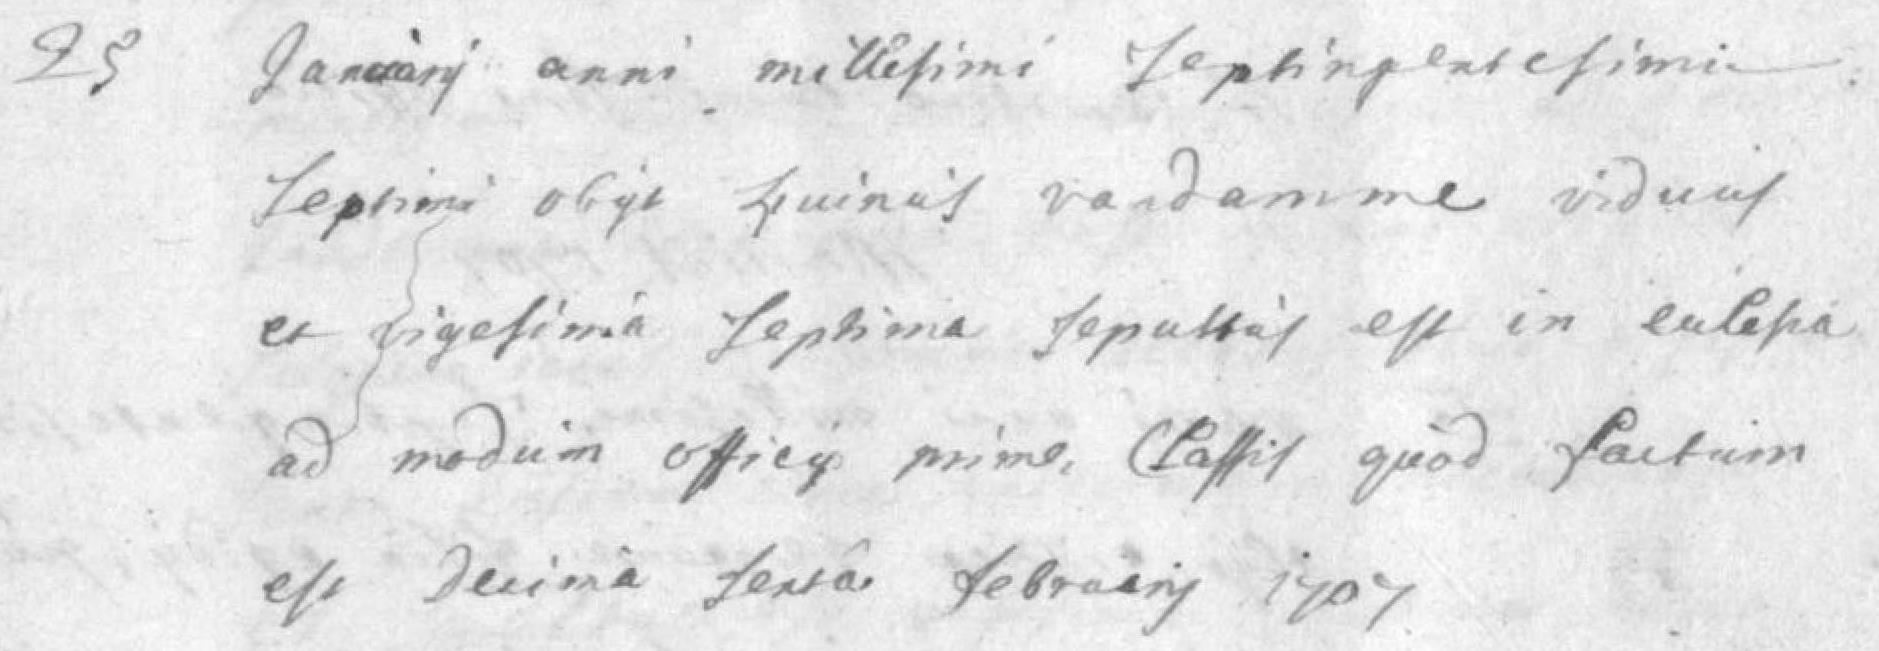 25 Januarij anni millesimi septingentesimi
septimi obijt quinus vandamme viduus
et vigesima septima sepultus est in eclesia
ad modum officij prime Classis quod factum
est decima sexta februarij 1707